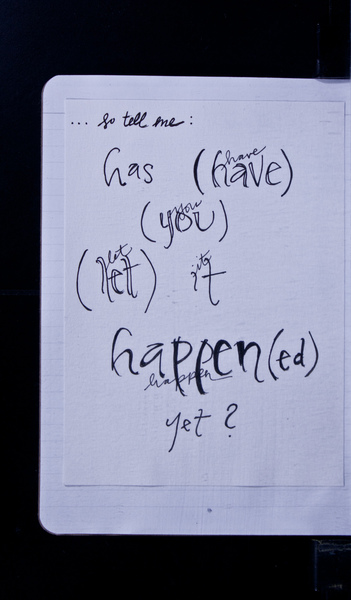 ... so tell me:
has (have)
have
(you)
you
(let) it
let it
happen(ed)
happen
yet?